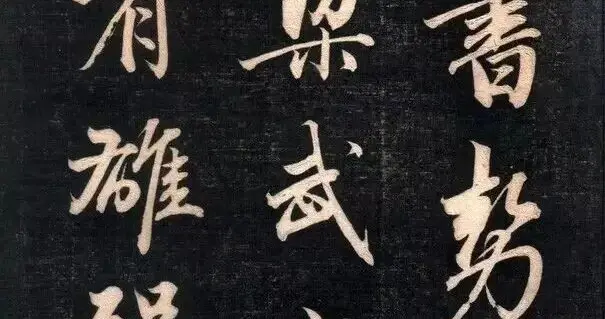 書勢
梁武
有雄強